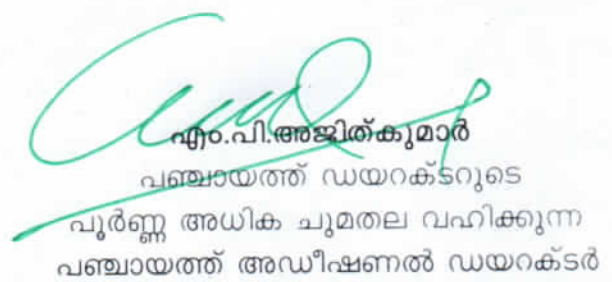 എം.പി.അജിത്കുമാർ
പഞ്ചായത്ത് ഡയറക്ടറുടെ
പൂർണ്ണ അധിക ചുമതല വഹിക്കുന്ന
പഞ്ചായത്ത് അഡീഷണൽ ഡയറക്ടർ